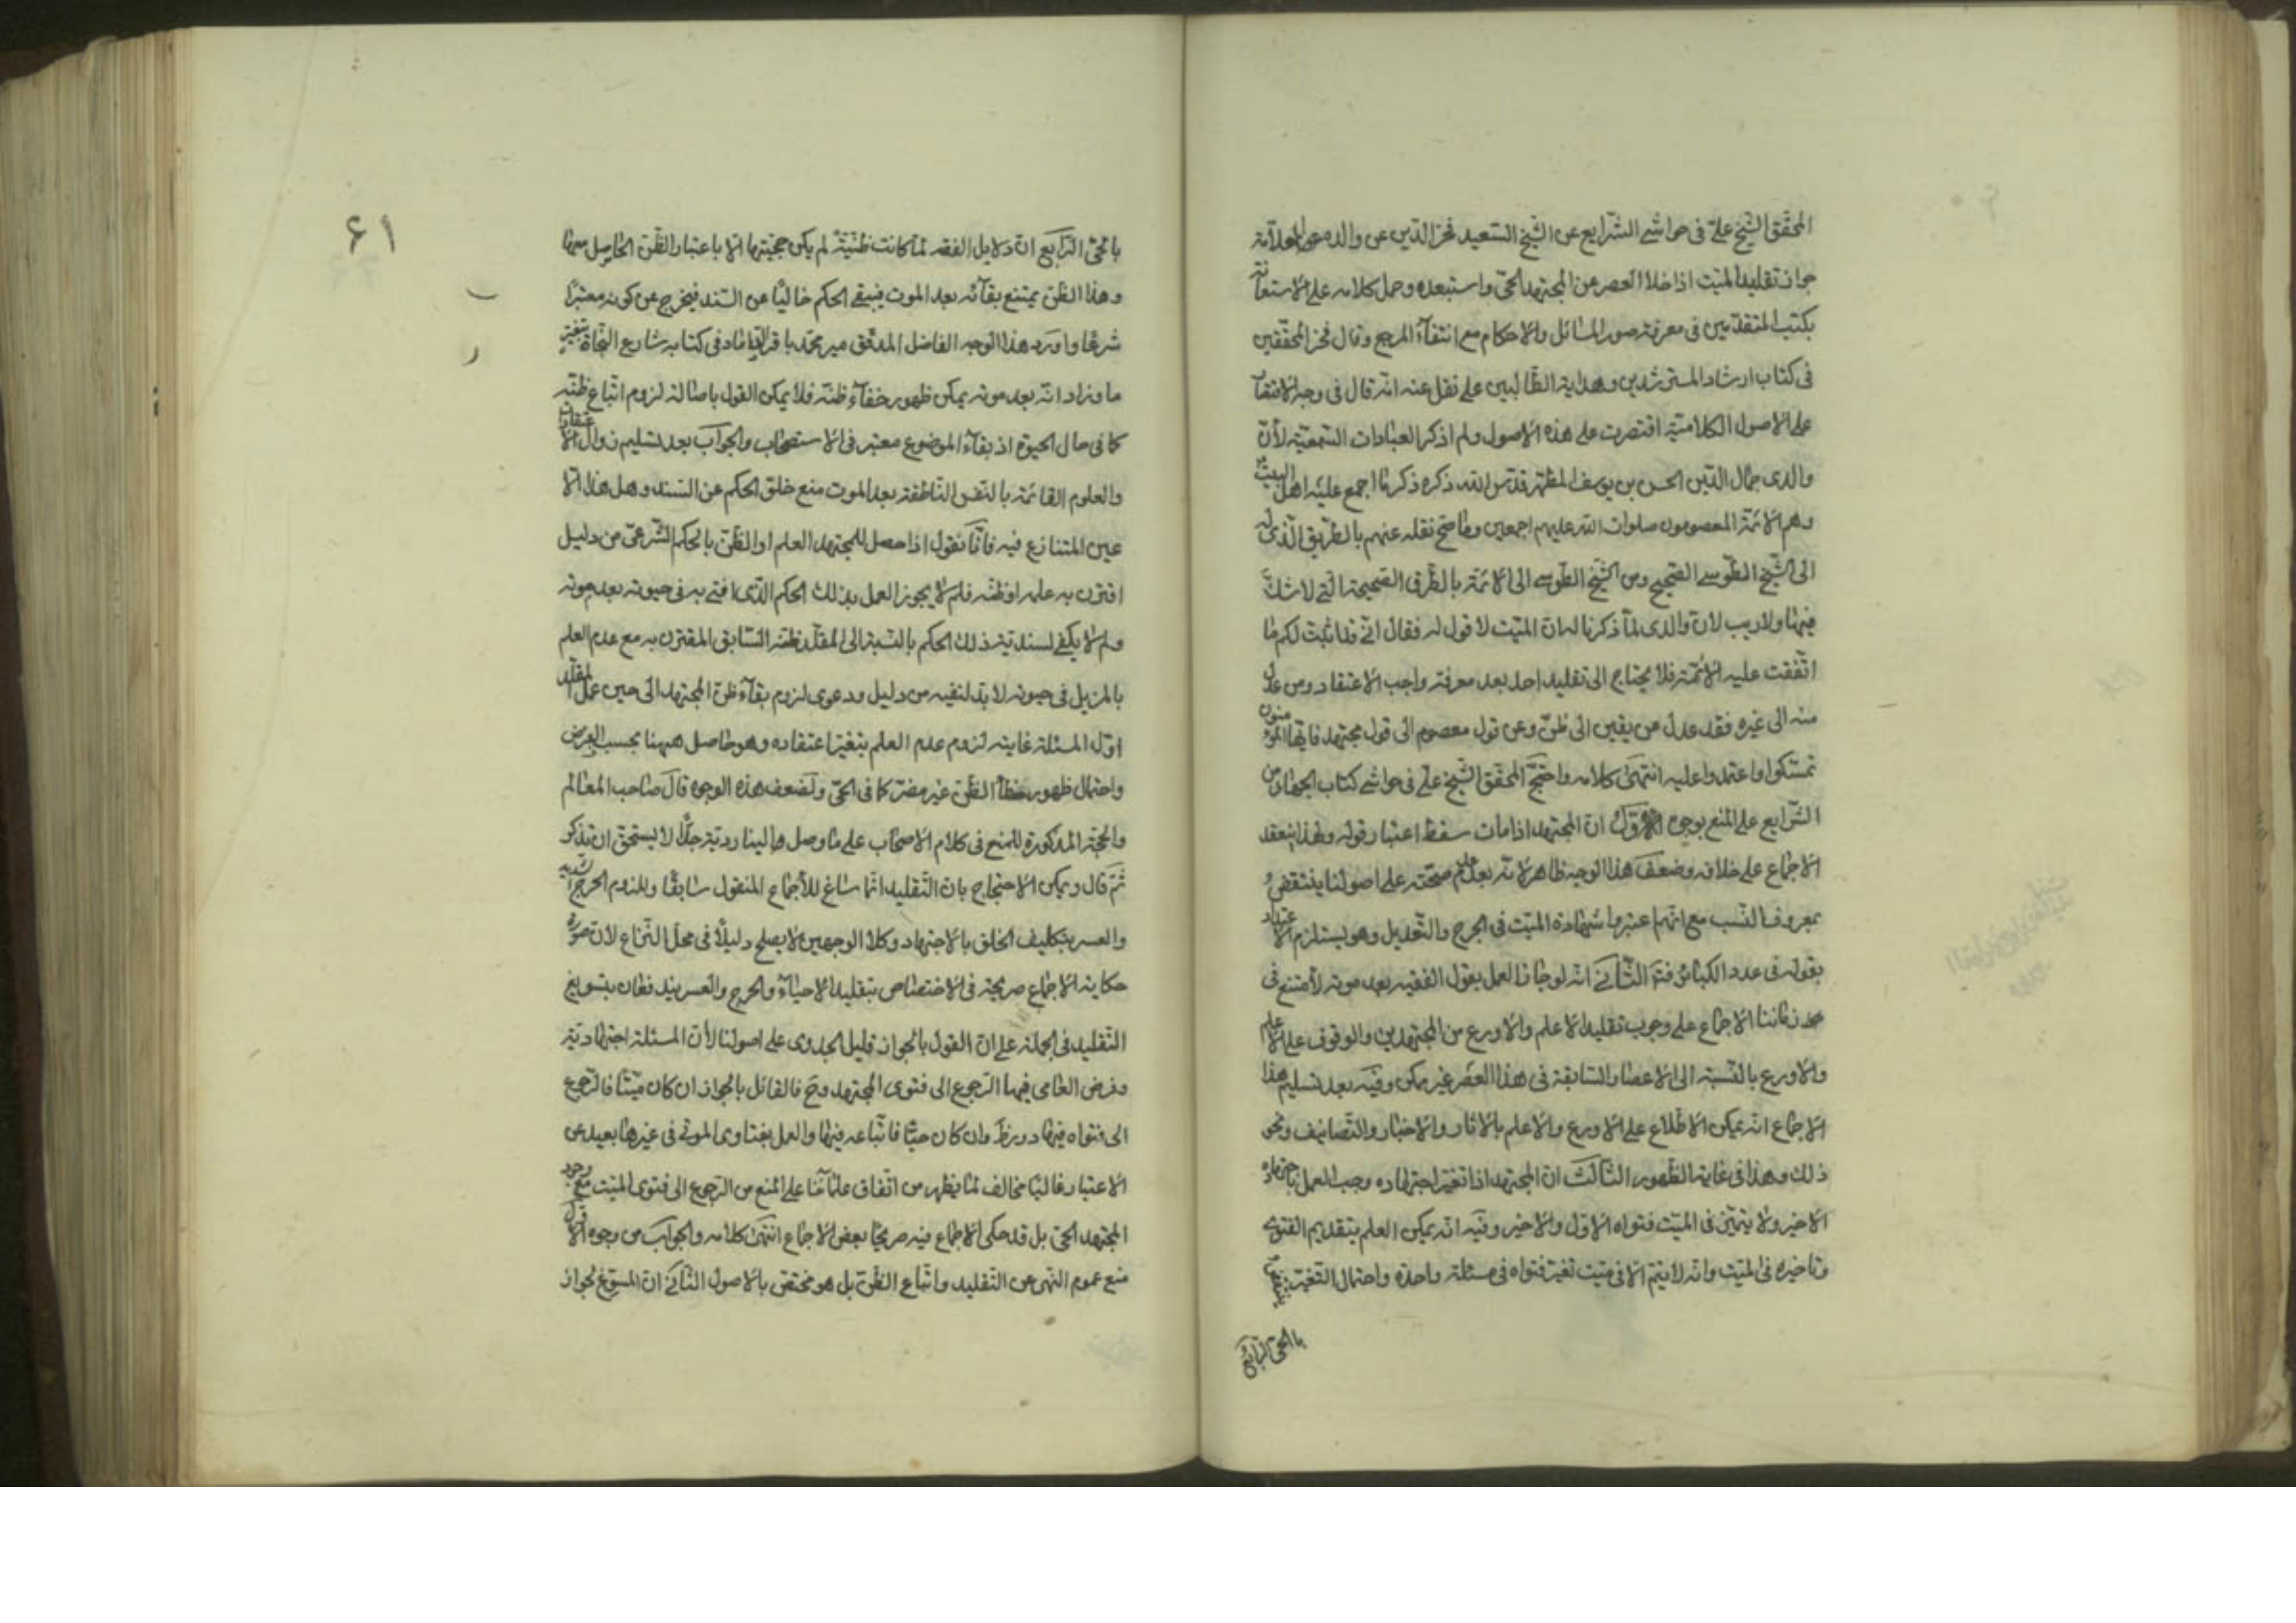 المحقق الشيخ علي في حواشي الشرايع عن الشيخ السعيد فخر الدين عن والده العلامة
جواز تقليد الميت اذا خلا العصر عن المجتهد الحي واستبعده وحمل كلامه على الاستعانة
بكتب المتقدمين في معرفة صور المسائل والاحكام مع انتفاء المرجع وقال فخر المحققين
في كتاب ارشاد المسترشدين وهداية الطالبين على نقل عنه انه قال في وجه الاقتصار
على الاصول الكلامية اقتصرت على هذه الاصول ولم اذكر العبادات السمعية لأن
والدي جمال الدين الحسن بن يوسف المطهر قدس الله ذكره ذكر ما اجمع عليه اهل البيت
وهم الائمة المعصومون صلوات الله عليهم اجمعين وما صح نقله عنهم بالطريق الذي له
الى الشيخ الطوسي الصحيح ومن الشيخ الطوسي الى الائمة بالطرق الصحيحة التي لا شك
فيها ولا ريب لان والدي لما ذكرنا له ان الميت لا قول له فقال اني قد اثبت لكم ما
اتفقت عليه الائمة فلا يحتاج الى تقليد احد بعد معرفة واجب الاعتقاد ومن عدل
منه الى غيره فقد عدل من يقين الى ظن وعن قول معصوم الى قول مجتهد فايها المؤمنون
تمسكوا واعتمدوا عليه انتهى كلامه واحتج المحقق الشيخ علي في حواشي كتاب الجهاد من
الشرايع على المنع بوجوه الاول ان المجتهد اذا مات سقط اعتبار قوله ولهذا ينعقد
الاجماع على خلافه وضعف هذا الوجه ظاهر لانه بعد عدم صحته على اصولنا ينتقض
بمعروف النسب مع انهم اعتبروا شهادة الميت في الجرح والتعديل وهو يستلزم الاعتداد
بقوله في عدد الكبائر الثاني انه لو جاز العمل بقول الفقيه بعد موته لامتنع في
زماننا الاجماع على وجوب تقليد الاعلم والاورع من المجتهدين والوقوف على الاعلم
والاورع بالنسبة الى الاعصار السابقة في هذا العصر غير ممكن وفيه بعد تسليم هذا
الاجماع انه يمكن الاطلاع على الاورع والاعلم بالاثار والاخبار والتصانيف ونحو
ذلك وهذا في غاية الظهور الثالث ان المجتهد اذا تغير اجتهاده وجب العمل باجتهاده
الاخير ولا يتميز في الميت فتواه الاول والاخير وفيه انه يمكن العلم بتقديم الفتوى
وتاخيره في الميت وانه لا يتم الا في ميت تغير فتواه في مسئلة واحدة واحتمال التغير
بالحي الرابع
۶۱
بالحي الرابع ان دلايل الفقه لما كانت ظنية لم يكن حجيتها الا باعتبار الظن الحاصل معها
وهذا الظن يمتنع بقائه بعد الموت فيبقى الحكم خاليا عن السند فيخرج عن كونه معتبرا
شرعا واورد هذا الوجه الفاضل المدقق مير محمد باقر الداماد في كتابه شارع النجاة بتغيير
ما وزاد انه بعد موته يمكن ظهور خطاء ظنه فلا يمكن القول باصالة لزوم اتباع ظنه
كما في حال الحيوة اذ بقاء الموضوع معتبر في الاستصحاب والجواب بعد تسليم زوال الاعتقادات
والعلوم القائمة بالنفس الناطقة بعد الموت منع خلو الحكم عن السند وهل هذا الا
عين المتنازع فيه فانا نقول اذا حصل للمجتهد العلم او الظن بالحكم الشرعي من دليل
اقترن به علمه او ظنه فلم لا يجوز العمل بذلك الحكم الذي افتى به في حيوته بعد موته
ولم لا يكفي لسندية ذلك الحكم بالنسبة الى المقلد ظنه السابق المقترن به مع عدم العلم
بالمزيل في حيوته لا بد لنفيه من دليل ودعوى لزوم بقاء ظن المجتهد الى حين عمل المقلد
اول المسئلة غايته لزوم عدم العلم بتغير اعتقاده وهو حاصل ههنا بحسب الفرض
واحتمال ظهور خطأ الظن غير مضر كما في الحي ولضعف هذه الوجوه قال صاحب المعالم
والحجة المذكورة للمنع في كلام الاصحاب على ما وصل الينا ردية جدا لا يستحق ان تذكر
ثم قال ويمكن الاحتجاج بان التقليد انما ساغ للأجماع المنقول سابقا وللزوم الحرج الشديد
والعسر بتكليف الخلق بالاجتهاد وكلا الوجهين لا يصلح دليلا في محل النزاع لان صورة
حكاية الاجماع صريحة في الاختصاص بتقليد الاحياء والحرج والعسر يندفعان بتسويغ
التقليد في الجملة على ان القول بالجواز قليل الجدوى على اصولنا لأن المسئلة اجتهادية
وفرض العامي فيها الرجوع الى فتوى المجتهد وح فالقائل بالجواز ان كان ميتا فالرجوع
الى فتواه فيها دور ظ وان كان حيا فاتباعه فيها والعمل بفتاوى الموتى في غيرها بعيد عن
الاعتبار غالبا مخالف لما يظهر من اتفاق علمائنا على المنع من الرجوع الى فتوى الميت مع وجود
المجتهد الحي بل قد حكى الاجماع فيه صريحا بعض الاجماع انتهى كلامه والجواب من وجوه الاول
منع عموم النهى عن التقليد واتباع الظن بل هو مختص بالاصول الثاني ان المسوغ لجواز